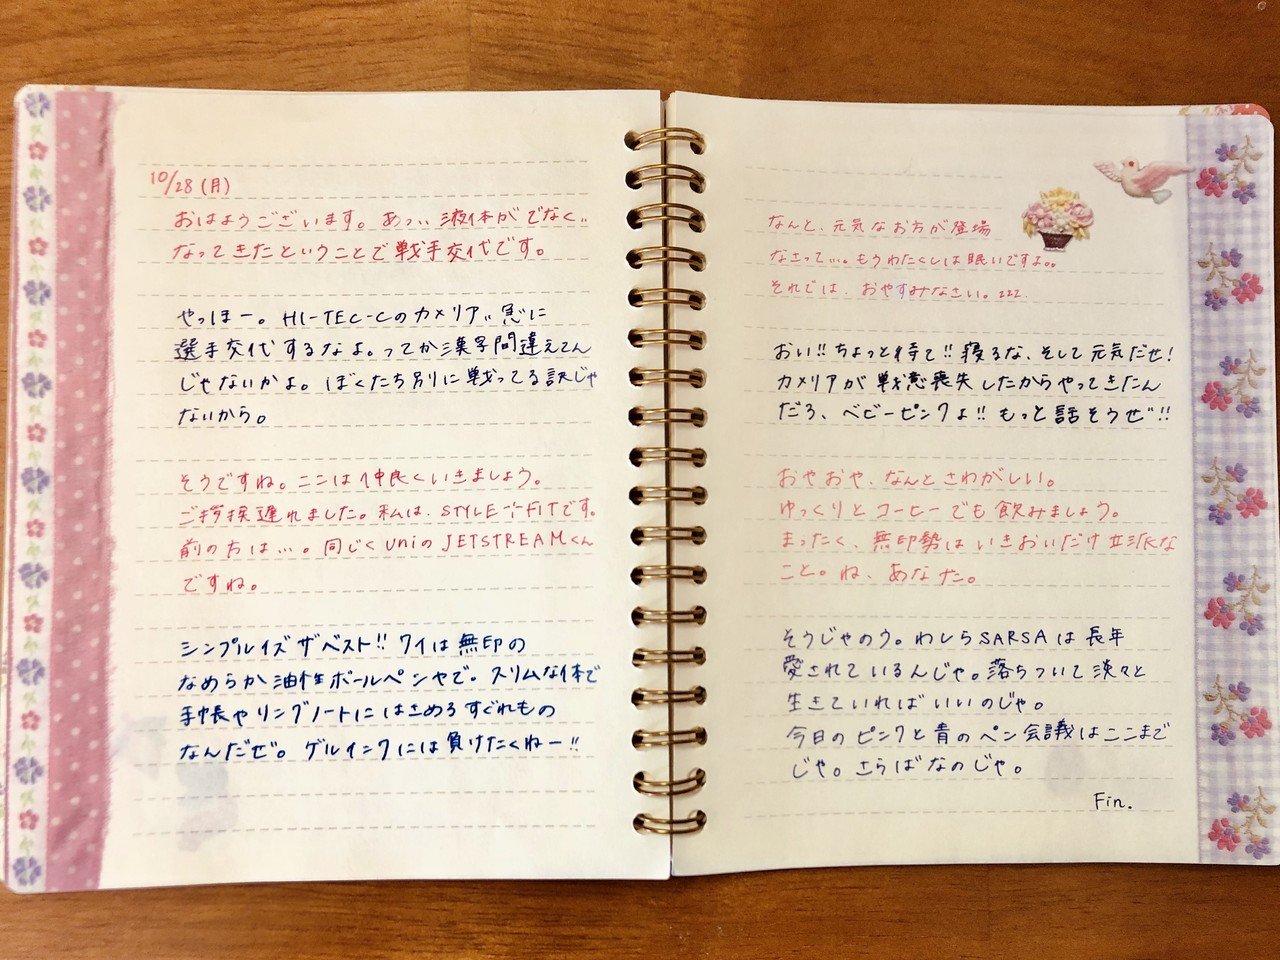 10/28(月)
おはようございます。あっ、、液体がでなく、、
なってきたということで戦手交代です。
やっほー。HI-TEC-Cのカメリア、、急に
選手交代するなよ。ってか漢字間違えてん
じゃないかよ。ぼくたち別に戦ってる訳じゃ
ないから。
そうですね。ここは仲良くいきましょう。
ご挨拶遅れました。私は、STYLE-FITです。
前の方は…。同じくuniのJETSTREAMくん
ですね。
シンプルイズザベスト!!ワイは無印の
なめらか油性ボールペンやで。スリムな体で
手帳やリングノートにはさめるすぐれもの
なんだぜ。ゲルインクには負けたくねー!!
なんと、元気なお方が登場
なさって…。もうわたくしは眠いですよ。。
それでは、おやすみなさい。zzz.
おい!!ちょっと待て!!寝るな、そして元気だせ!
カメリアが戦意喪失したからやってきたん
だろ、ベビーピンクよ!!もっと話そうぜ!!
おやおや、なんとさわがしい。
ゆっくりとコーヒーでも飲みましょう。
まったく、無印勢はいきおいだけ立派な
こと。ね、あなた。
そうじゃのう。わしらSARSAは長年
愛されているんじゃ。落ちついて淡々と
生きていればいいのじゃ。
今日のピンクと青のペン会議はここまで
じゃ。さらばなのじゃ。
Fin.